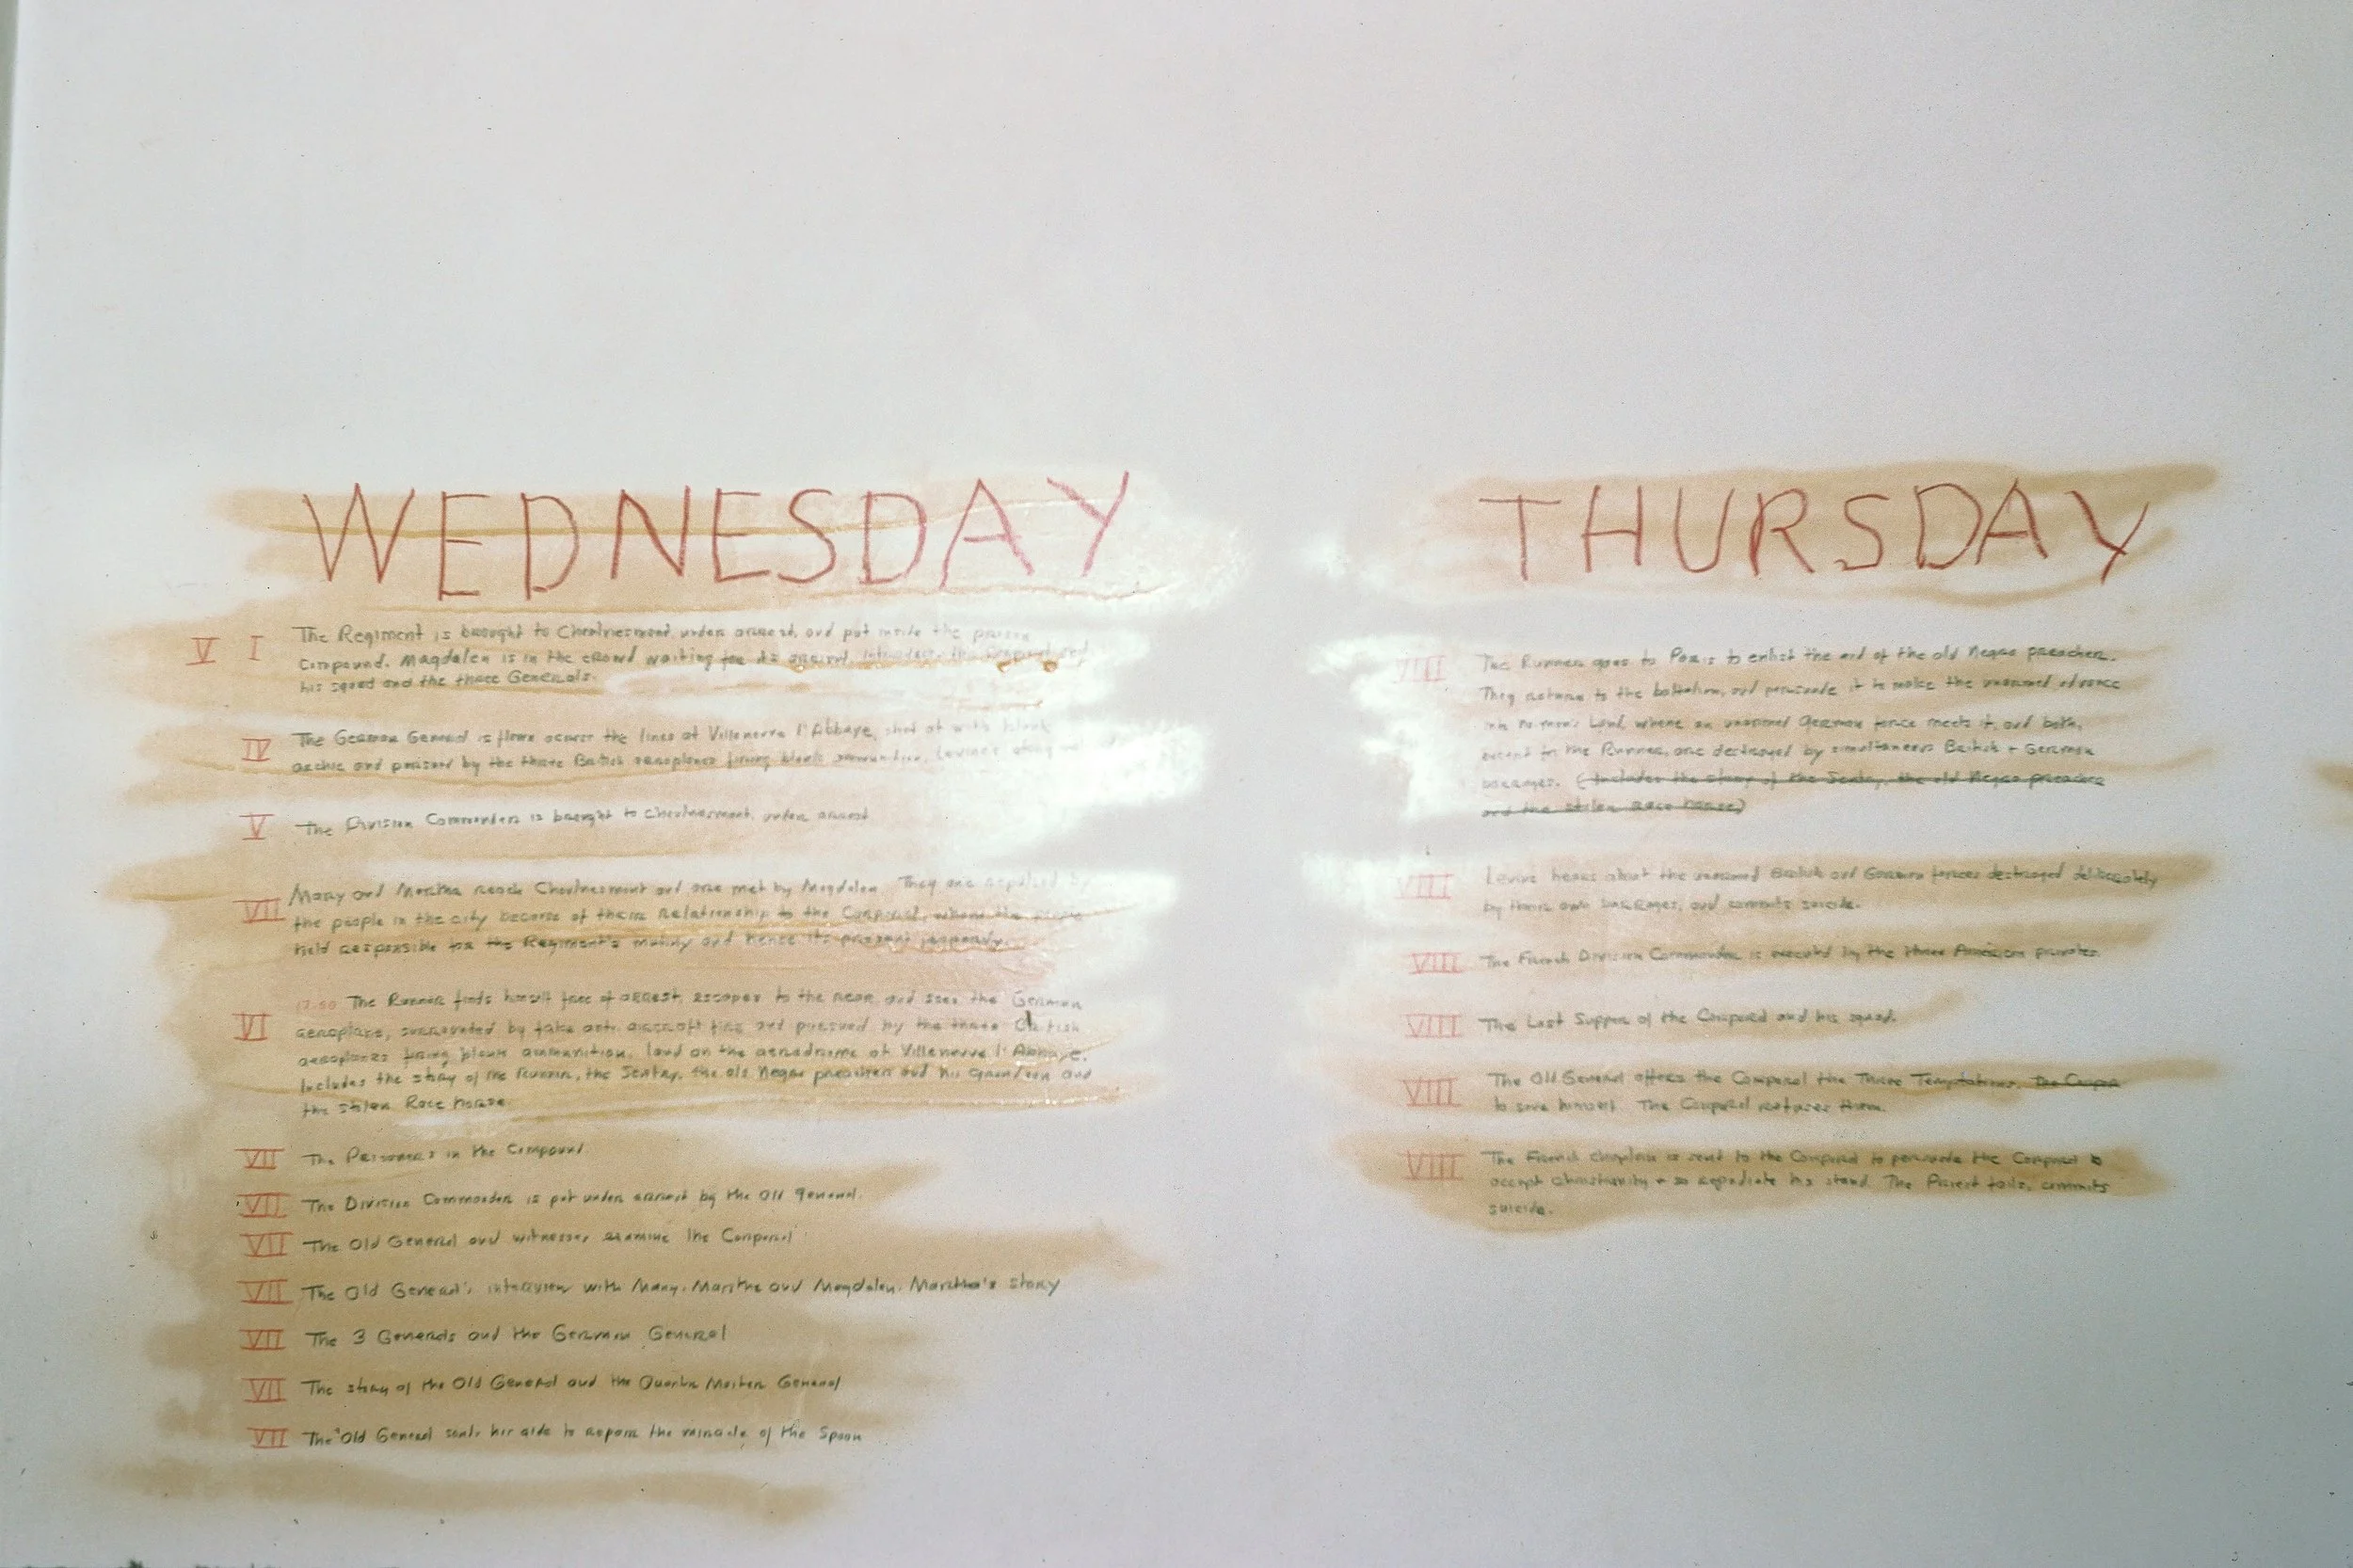 WEDNESDAY
V I The Regiment is brought to Chaulnesmont, under arrest, and put inside the prison
Compound. Magdalen is in the crowd waiting for its arrival. Introduces the Corporal and
his squad and the three Generals.
IV The German General is flown across the lines at Villeneuve l'Abbaye, shot at with blank
archie and pursued by the three British aeroplanes firing blank ammunition,
V The Division Commander is brought to Chaulnesmont, under arrest
VII Mary and Martha reach Chaulnesmont and are met by Magdalen. They are repulsed by
the people in the city because of their relationship to the Corporal, whom the people
held responsible for the Regiment's mutiny and hence its present jeopardy.
VI The Runner finds himself free of arrest, escapes to the rear and sees the German
aeroplane, surrounded by fake anti aircraft fire and pursued by the three British
aeroplanes firing blank ammunition, land on the aerodrome at Villeneuve l'Abbaye.
Includes the story of the Runner, the Sentry, the old Negro preacher and his grandson and
the stolen Race horse.
VII The Prisoners in the Compound.
VII The Division Commander is put under arrest by the Old General.
VII The Old General and witnesses examine the Corporal
VII The Old General's interview with Mary, Marthe and Magdalen. Marthe's story
VII The 3 Generals and the German General
VII The story of the Old General and the Quarter Master General
VII The Old General sends his aide to report the miracle of the Spoon
THURSDAY
VIII The Runner goes to Paris to enlist the aid of the old Negro preacher.
They return to the battalion, and persuade it to make the unarmed advance
into no-man's Land, where an unarmed German force meets it, and both,
except for the Runner, are destroyed by simultaneous British + German
barrages. (Includes the story of the Sentry, the old Negro preacher
and the stolen race horse)
VIII Levine hears about the unarmed British and German forces destroyed deliberately
by their own barrages, and commits suicide.
VIII The French Division Commander is executed by the three American privates.
VIII The Last Supper of the Corporal and his squad.
VIII The Old General offers the Corporal the Three Temptations.
to save himself. The Corporal refuses them.
VIII The French chaplain is sent to the Corporal to persuade the Corporal to
accept Christianity + so repudiate his stand. The Priest fails, commits
suicide.